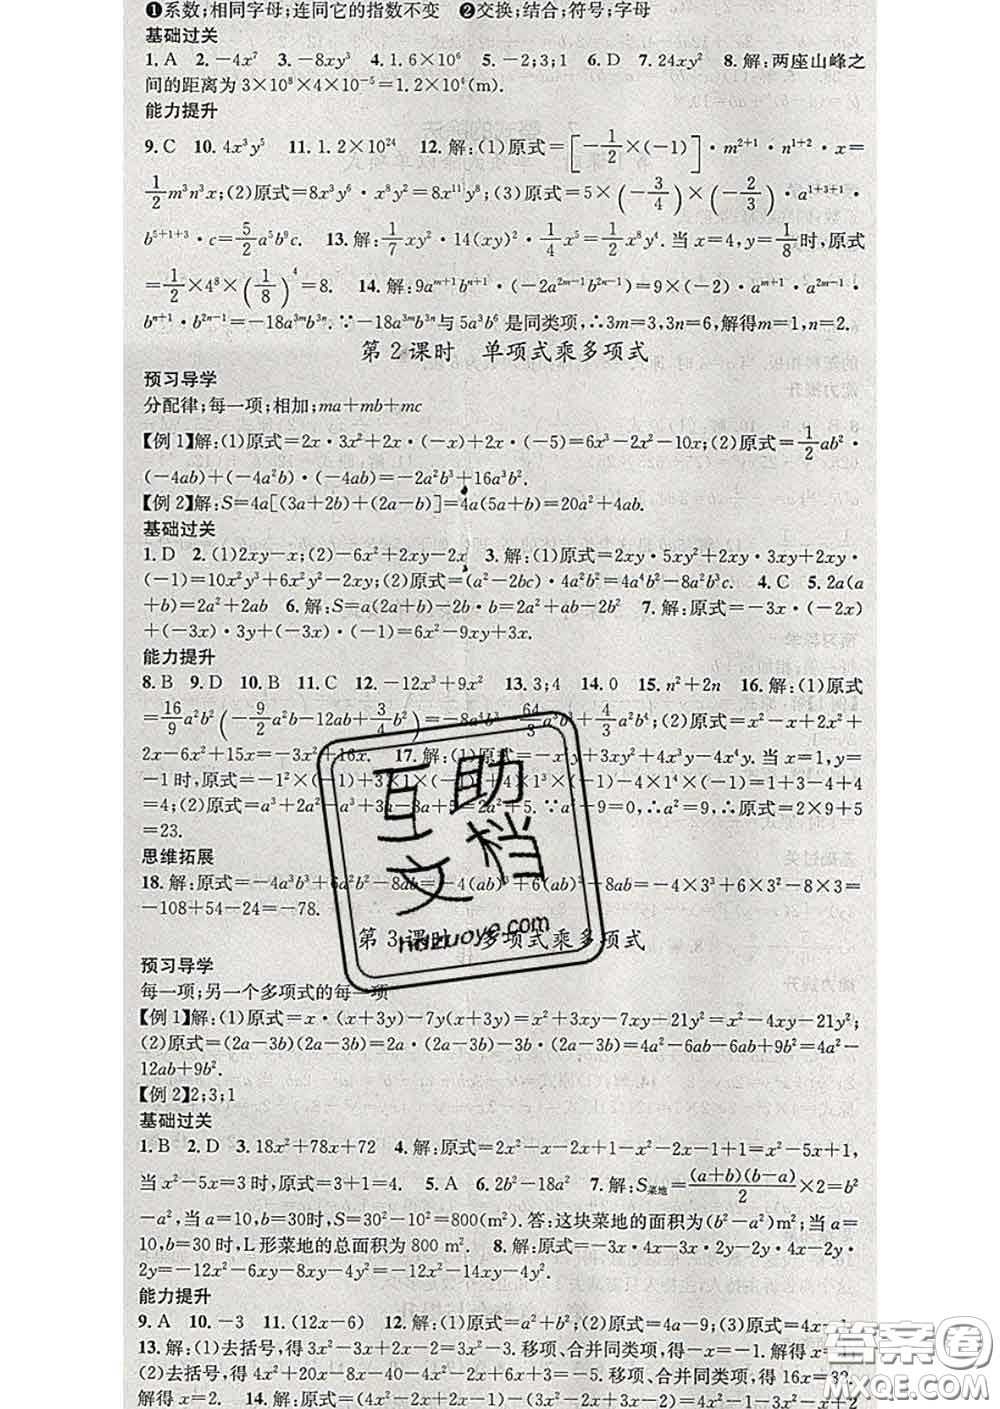 ❶系数;相同字母;连同它的指数不变 ❷交换;结合;符号;字母
基础过关
1. A 2. −4x⁷ 3. −8xy³ 4. 1.6×10⁶ 5. −2;3;1 6. D 7. 24xy² 8. 解:两座山峰之
间的距离为 3×10⁸×4×10⁻⁵=1.2×10⁴(m).
能力提升
9. C 10. 4x³y⁵ 11. 1.2×10²⁴ 12. 解:(1)原式=[−1/2×(−1)]·m²⁺¹·n¹⁺²·x=
1/2m³n³x;(2)原式=8x³y⁶·x⁸y²=8x¹¹y⁸;(3)原式=5×(−3/4)×(−2/3)·a¹⁺³⁺¹·
b⁵⁺¹⁺³·c=5/2a⁵b⁹c. 13. 解:1/7xy²·14(xy)²·1/4x⁵=1/2x⁸y⁴. 当 x=4,y=1/8时,原式
=1/2×4⁸×(1/8)⁴=8. 14. 解:9aᵐ⁺¹bⁿ⁺¹·(−2a²ᵐ⁻¹b²ⁿ⁻¹)=9×(−2)·aᵐ⁺¹·a²ᵐ⁻¹·
bⁿ⁺¹·b²ⁿ⁻¹=−18a³ᵐb³ⁿ. ∵−18a³ᵐb³ⁿ与 5a³b⁶ 是同类项,∴3m=3,3n=6,解得m=1,n=2.
第 2 课时 单项式乘多项式
预习导学
分配律;每一项;相加;ma+mb+mc
【例 1】解:(1)原式=2x·3x²+2x·(−x)+2x·(−5)=6x³−2x²−10x;(2)原式=1/2ab²·
(−4ab)+(−4a²b)·(−4ab)=−2a²b³+16a³b².
【例 2】解:S=4a[(3a+2b)+(2a−b)]=4a(5a+b)=20a²+4ab.
基础过关
1. D 2. (1)2xy−x;(2)−6x²+2xy−2x 3. 解:(1)原式=2xy·5xy²+2xy·3xy+2xy·
(−1)=10x²y³+6x²y²−2xy;(2)原式=(a²−2bc)·4a²b²=4a⁴b²−8a²b³c. 4. C 5. 2a(a
+b)=2a²+2ab 6. 解:S=a(2a+b)−2b·b=2a²+ab−2b² 7. 解:原式=−3x·(−2x)
+(−3x)·3y+(−3x)·(−1)=6x²−9xy+3x.
能力提升
8. B 9. D 10. B 11. C 12. −12x³+9x² 13. 3;4 14. 0 15. n²+2n 16. 解:(1)原式
=16/9a²b²(−9/2a²b−12ab+3/4b²)=−8a⁴b³−64/3a³b³+4/3a²b⁴;(2)原式=x²−x+2x²+
2x−6x²+15x=−3x²+16x. 17. 解:(1)原式=−xy+3xy²+4x³y−4x⁴y. 当 x=1,y=
−1 时,原式=−1²×(−1)+3×1×(−1)²+4×1³×(−1)−4×1⁴×(−1)=1+3−4+4
=4;(2)原式=a³+2a²−2a²+3a−a³−3a+5=2a²+5. ∵a²−9=0,∴a²=9;原式=2×9+5
=23.
思维拓展
18. 解:原式=−4a³b³+6a²b²−8ab=−4(ab)³+6(ab)²−8ab=−4×3³+6×3²−8×3=
−108+54−24=−78.
第 3 课时 多项式乘多项式
预习导学
每一项;另一个多项式的每一项
【例 1】解:(1)原式=x·(x+3y)−7y(x+3y)=x²+3xy−7xy−21y²=x²−4xy−21y²;
(2)原式=(2a−3b)(2a−3b)=2a·(2a−3b)−3b·(2a−3b)=4a²−6ab−6ab+9b²=4a²−
12ab+9b².
【例 2】2;3;1
基础过关
1. B 2. D 3. 18x²+78x+72 4. 解:原式=2x²−x−2x+1−x²−2x−1+1=x²−5x+1,
当 x²−5x=3 时,原式=3+1=4. 5. A 6. 2b²−18a² 7. 解:S菜地=(a+b)(b−a)/2×2=b²
−a²,当 a=10,b=30时,S=30²−10²=800(m²). 答:这块菜地的面积为(b²−a²)m²;当 a=
10,b=30 时,L 形菜地的总面积为 800 m². 8. 解:原式=−3x·4x−3x·2y−2y·4x−2y·
2y=−12x²−6xy−8xy−4y²=−12x²−14xy−4y².
能力提升
9. A 10. −3 11. (12x−6) 12. 解:(1)原式=a²+2b²;(2)原式=4a−9;(3)原式=4x−1.
13. 解:(1)去括号,得3x²−3x−2x²−4x=x²−6x. 移项、合并同类项,得−x=
(2)去括号,得 4x²+20x−8x−40−4x²+4x=−5. 移项、合并同类项,得 16x=32.
解得 x=2. 14. 解:原式=(4x²−2x+2x−1)−(3x²−2x+
互助文档
hdzuoye.com
答案圈
MXQE.COM